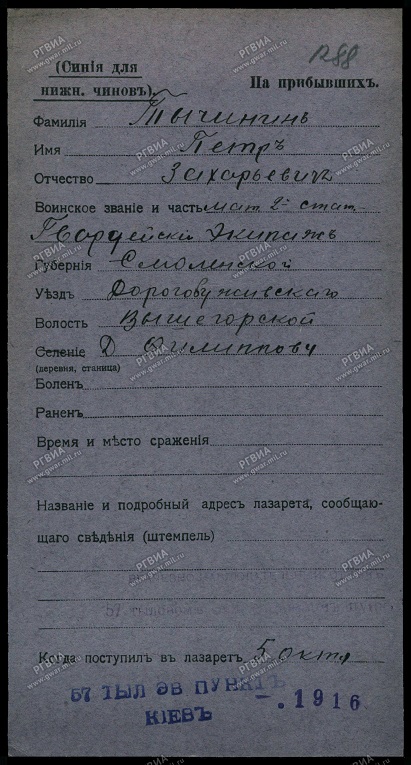 1288
(Синія для
нижн. чиновъ).
На прибывшихъ.
Фамилія Тычининъ
Имя Петръ
Отчество Захарьевичъ
Воинское званіе и часть мат. 2й стат.
Гвардейскій Экипажъ
Губернія Смоленской
Уѣздъ Дорогобужскаго
Волость Вышегорской
Селеніе Д Филиппову
(деревня, станица)
Боленъ
Раненъ
Время и мѣсто сраженія
Названіе и подробный адресъ лазарета, сообщаю-
щаго свѣдѣнія (штемпель)
Когда поступилъ въ лазаретъ 5 октя
57 ТЫЛ ЭВ ПУНКТЪ
. 1916
КІЕВЪ
РГВИА
www.gwar.mil.ru